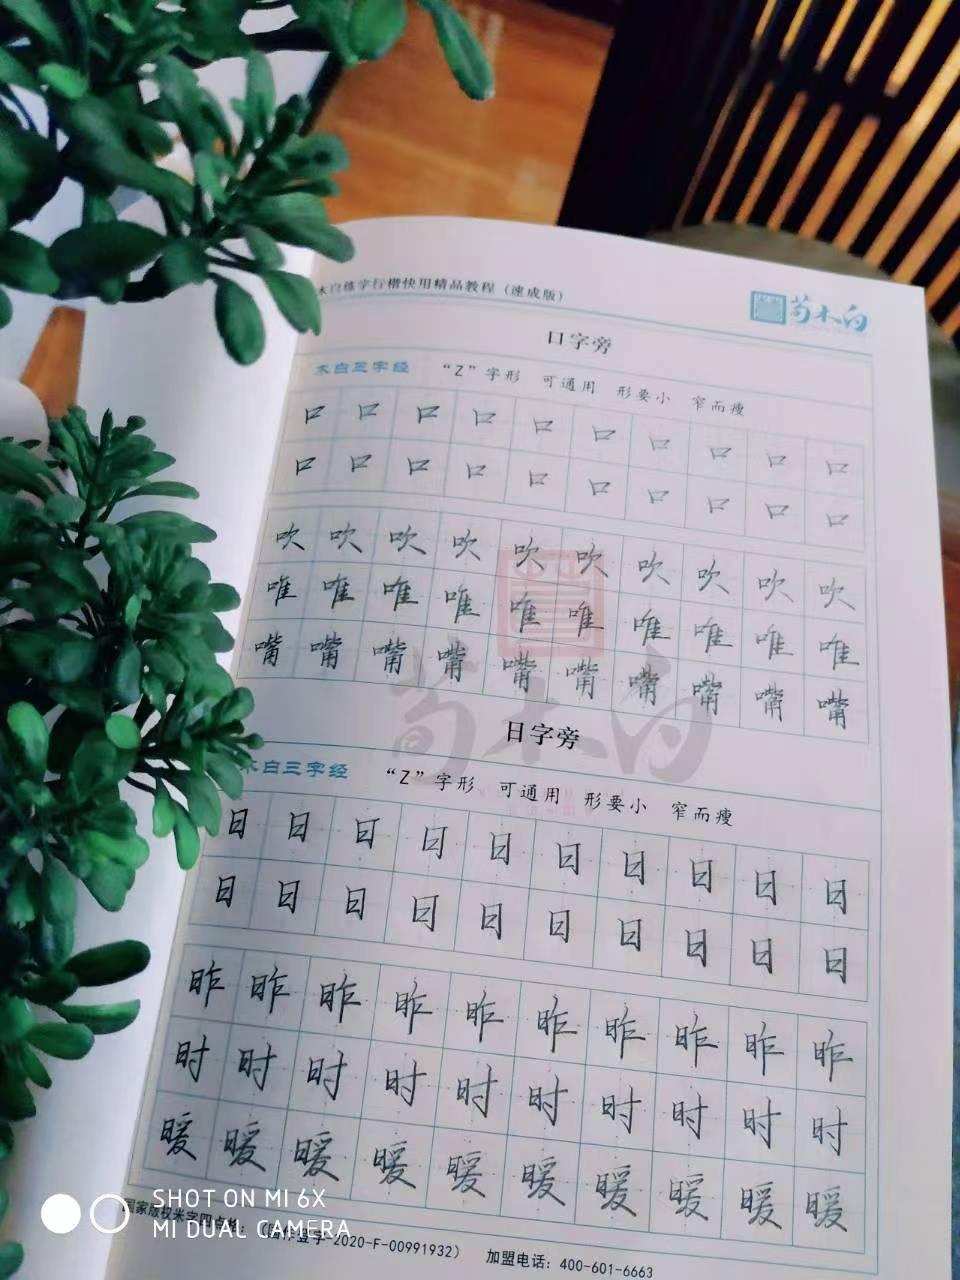 木白练字行楷快用精品教程（速成版）
荀木白
口字旁
木白三字经 “Z”字形 可通用 形要小 窄而瘦
口 口 口 口 口 口 口 口 口 口
口 口 口 口 口 口 口 口 口 口
吹 吹 吹 吹 吹 吹 吹 吹 吹 吹
唯 唯 唯 唯 唯 唯 唯 唯 唯 唯
嘴 嘴 嘴 嘴 嘴 嘴 嘴 嘴 嘴 嘴
荀木白
日字旁
木白三字经 “Z”字形 可通用 形要小 窄而瘦
日 日 日 日 日 日 日 日 日 日
日 日 日 日 日 日 日 日 日 日
昨 昨 昨 昨 昨 昨 昨 昨 昨 昨
时 时 时 时 时 时 时 时 时 时
暖 暖 暖 暖 暖 暖 暖 暖 暖 暖
国家版权米字四 （国作登字-2020-F-00991932） 加盟电话：400-601-6663
SHOT ON MI 6X
MI DUAL CAMERA